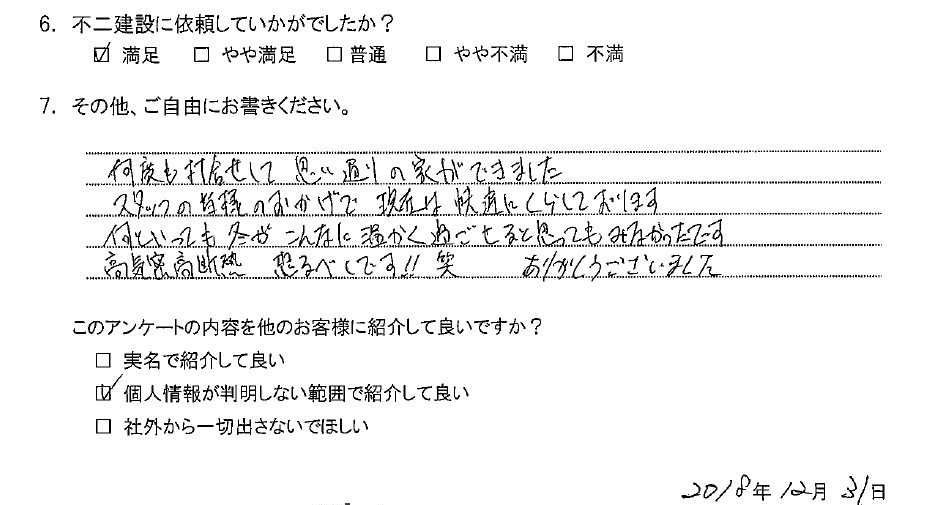 6. 不二建設に依頼していかがでしたか？
☑ 満足 □ やや満足 □ 普通 □ やや不満 □ 不満
7. その他、ご自由にお書きください。
何度も打合せして 思い通りの家ができました
スタッフの皆様のおかげで 現在は快適にくらしております
何といっても冬がこんなに温かく過ごせると思ってもみなかったです
高気密高断熱 恐るべしです!! 笑 ありがとうございました
このアンケートの内容を他のお客様に紹介して良いですか？
□ 実名で紹介して良い
☑ 個人情報が判明しない範囲で紹介して良い
□ 社外から一切出さないでほしい
2018年 12月 31日